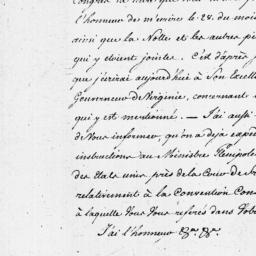 l'honneur de m'ecrire le 28. du mois
ainsi que la Notte et les autres pi
qui y etoient jointes. C'est d'après
que j'écrirai aujourdhui à Son Excelle
Gouverneur de Virginie, concernant
qui y est mentionné. — J'ai aussi
de Vous informer, qu'on a deja expé
instructions au Ministre Plenipote
des Etats unis près de la Cour de
relativement à la Convention Con
à laquelle Vous Vous referés dans Votr
J'ai l'honneur &ca. &ca.